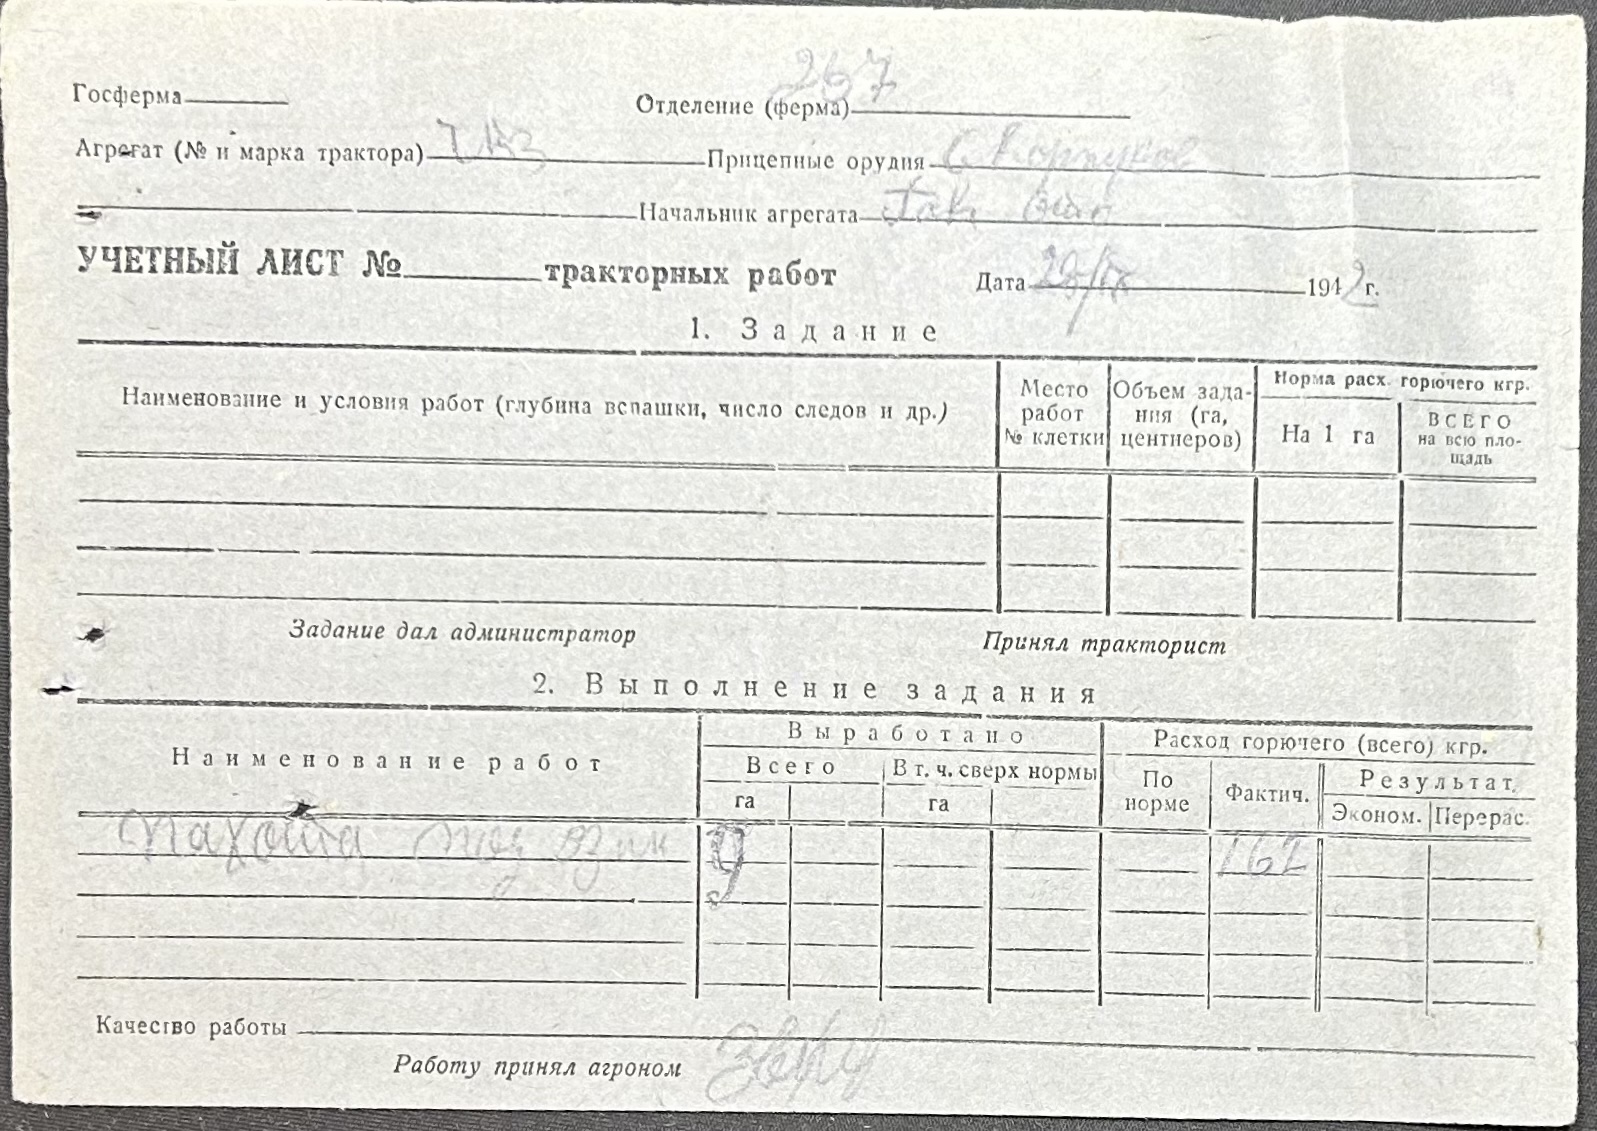 267
Госферма Отделение (ферма)
Агрегат (№ и марка трактора) Прицепные орудия
Начальник агрегата
УЧЕТНЫЙ ЛИСТ № тракторных работ Дата 1942 г.
1. Задание
Наименование и условия работ (глубина вспашки, число следов и др.) Место работ № клетки Объем зада- ния (га, центнеров) Норма расх. горючего кгр.
На 1 га ВСЕГО на всю пло- щадь
Задание дал администратор Принял тракторист
2. Выполнение задания
Наименование работ Выработано Расход горючего (всего) кгр.
Всего В т. ч. сверх нормы По норме Фактич. Результат.
га га Эконом. Перерас.
пахота под 9 162
Качество работы
Работу принял агроном